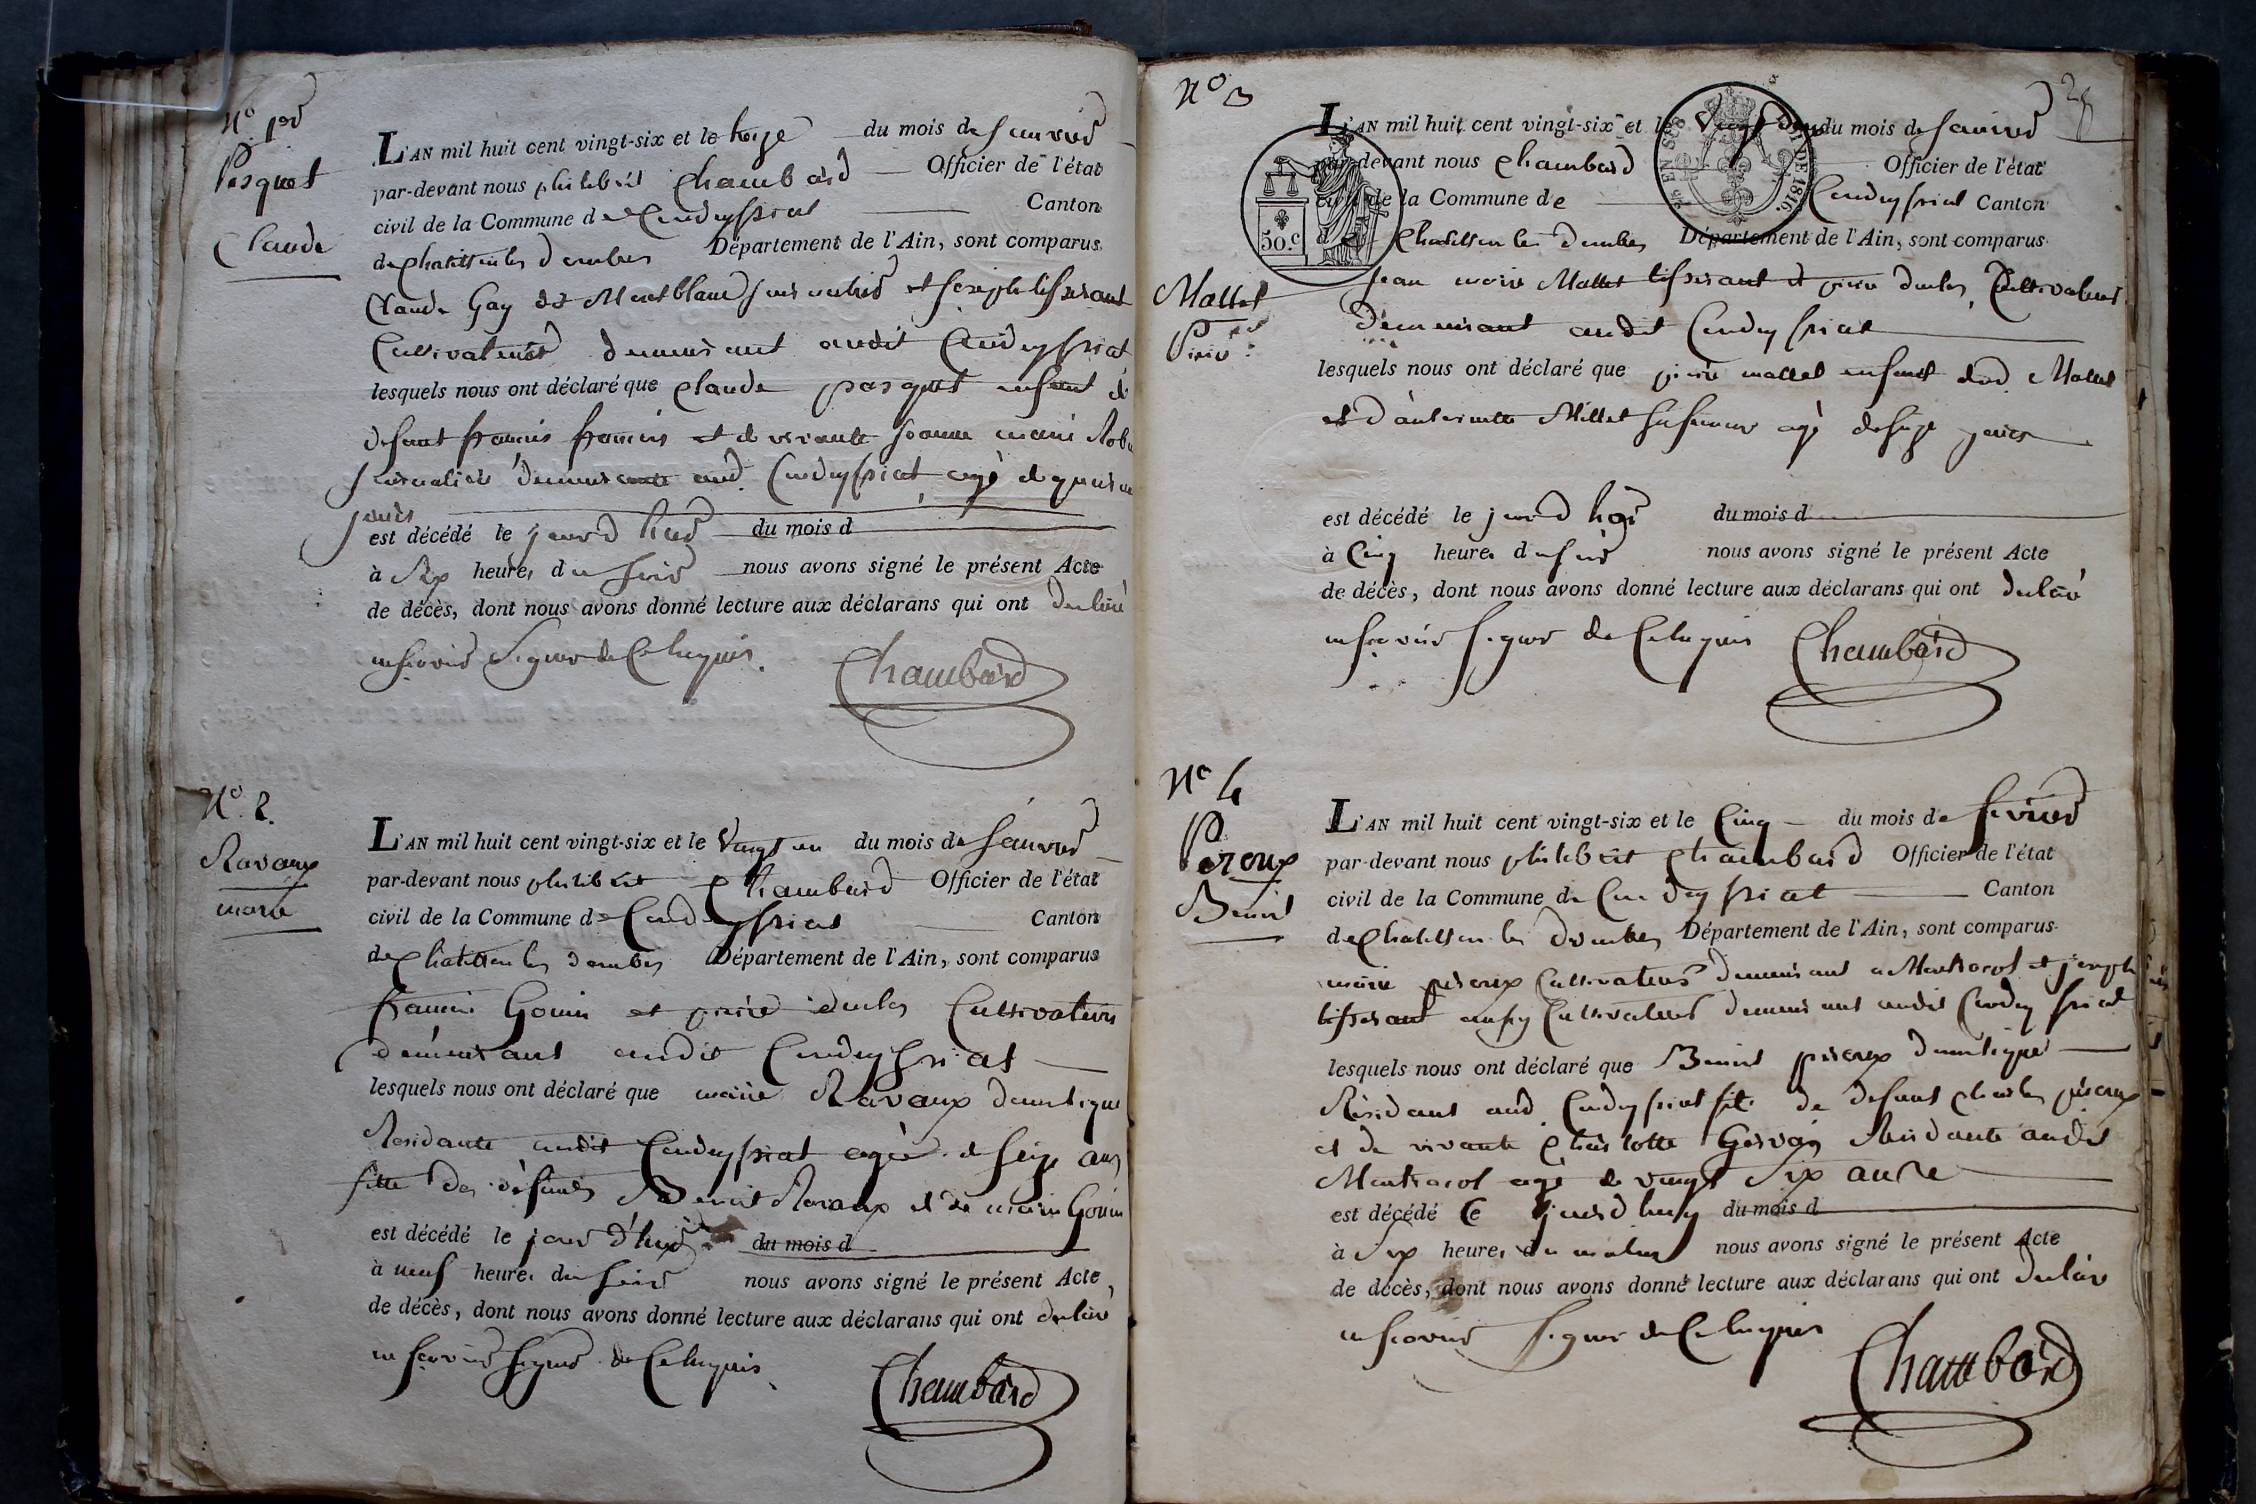 N.° 1er
Pasquet
Claude
L'AN mil huit cent vingt-six et le treize du mois de Janvier
par-devant nous philibert Chambard Officier de l'état
civil de la Commune de Condeyssiat Canton
de Chatillon les dombes Département de l'Ain, sont comparus
Claude Gay dit Montblanc journalier et joseph tisserant
Cultivateurs demeurant audit Condeyssiat
lesquels nous ont déclaré que Claude pasquet enfant de
defunt francois francois et de vivante jeanne marie
journaliere demeurante aud. Condeyssiat agé de quinze
jours
est décédé le jour d hier du mois d
à Six heures du soir nous avons signé le présent Acte
de décès, dont nous avons donné lecture aux déclarans qui ont declaré
ne scavoir Signer de Ce Enquis.
Chambard
N.° 2.
Ravaux
marie
L'AN mil huit cent vingt-six et le Vingt un du mois de Janvier
par-devant nous philibert Chambard Officier de l'état
civil de la Commune de Condeyssiat Canton
de Chatillon les dombes Département de l'Ain, sont comparus
francois Gouin et pierre Cultivateurs
demeurant audit Condeyssiat
lesquels nous ont déclaré que marie Ravaux domestique
Residante audit Condeyssiat agée de seize ans
fille des défunts Benoit Ravaux et de marie Gouin
est décédé le jour d'huy du mois d
à neuf heures du soir nous avons signé le présent Acte
de décès, dont nous avons donné lecture aux déclarans qui ont declaré
ne scavoir signer de Ce Enquis.
Chambard
N° 3
28
Mallet
Pierre
L'AN mil huit cent vingt-six et le Vingt deux du mois de Janvier
par-devant nous Chambard Officier de l'état
civil de la Commune de Condeyssiat Canton
de Chatillon les dombes Département de l'Ain, sont comparus
50.c
DE 1816.
Jean marie Mallet tisserant et pierre Cultivateur
demeurant audit Condeyssiat
lesquels nous ont déclaré que pierre mallet enfant dud Mallet
et d'antoinette Millet sa femme agé de seize jours
est décédé le jour d hier du mois d
à Cinq heures du soir nous avons signé le présent Acte
de décès, dont nous avons donné lecture aux déclarans qui ont declaré
ne scavoir signer de Ce Enquis
Chambard
N° 4
Peroux
Benoit
L'AN mil huit cent vingt-six et le Cinq du mois de fevrier
par-devant nous philibert Chambard Officier de l'état
civil de la Commune de Condeyssiat Canton
de Chatillon les Dombes Département de l'Ain, sont comparus
marie peroux Cultivateur demeurant a Montracol et joseph
tisserant aussy Cultivateur demeurant audit Condeyssiat
lesquels nous ont déclaré que Benoit peroux domestique
Résidant aud. Condeyssiat fils de defunt Charles peroux
et de vivante Charlotte Gervais Residante audit
Montracol agé de vingt Six ans
est décédé Ce jourd huy du mois d
à Six heures du matin nous avons signé le présent Acte
de décès, dont nous avons donné lecture aux déclarans qui ont declaré
ne scavoir signer de Ce Enquis
Chambard